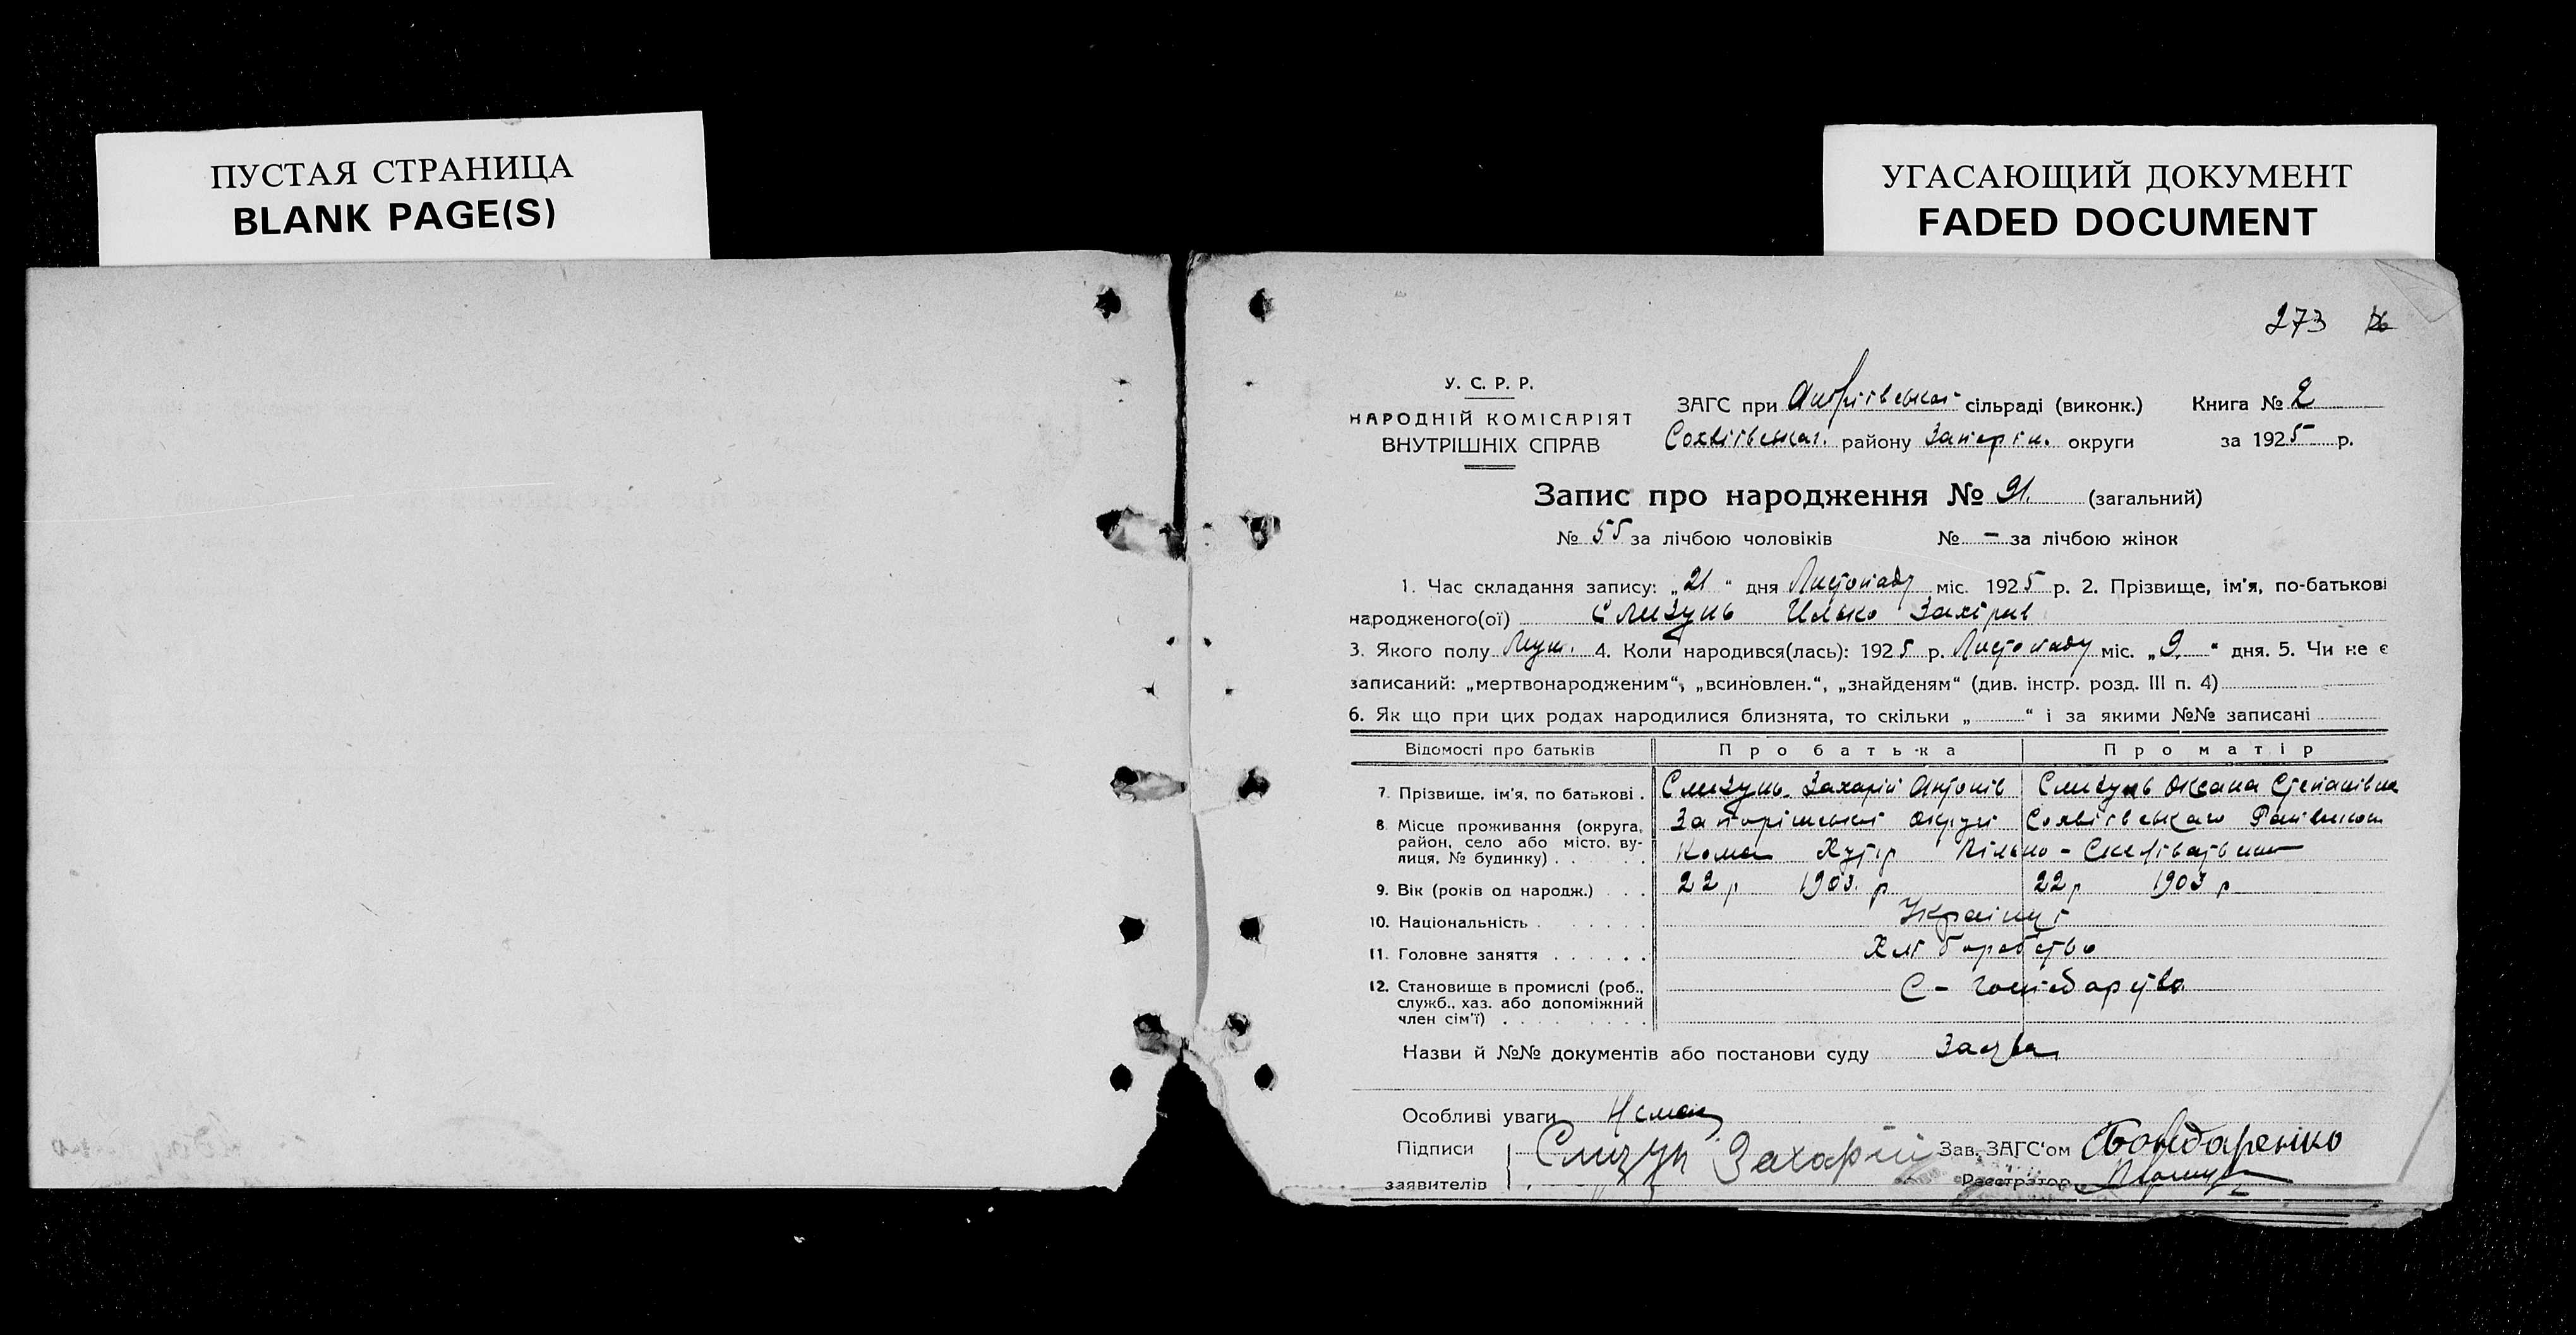 ПУСТАЯ СТРАНИЦА
BLANK PAGE(S)
УГАСАЮЩИЙ ДОКУМЕНТ
FADED DOCUMENT
273
У. С. Р. Р.
НАРОДНІЙ КОМІСАРІЯТ
ВНУТРІШНІХ СПРАВ
ЗАГС при Андріївській сільраді (виконк.) Книга № 2
району Запоріж. округи за 1925 р.
Запис про народження № 91 (загальний)
№ 55 за лічбою чоловіків № – за лічбою жінок
1. Час складання запису: „21“ дня Листопаду міс. 1925 р. 2. Прізвище, ім'я, по-батькові
народженого(ої) Слизунь Илько Захарів
3. Якого полу Муж. 4. Коли народився(лась): 1925 р. Листопаду міс. „9“ дня. 5. Чи не є
записаний: „мертвонародженим“, „всиновлен.“, „знайденям“ (див. інстр. розд. III п. 4)
6. Як що при цих родах народилися близнята, то скільки „ “ і за якими №№ записані
Відомості про батьків Про батька Про матір
7. Прізвище, ім'я, по батькові . Слизунь Захарій Антонів Слизунь Оксана Степанівна
8. Місце проживання (округа, район, село або місто, вулиця, № будинку) . . Запоріжської округи
Хутір
9. Вік (років од народж.) . . . 22 р 1903 р 22 р 1903 р
10. Національність . Українці
11. Головне заняття . Хліборобство
12. Становище в промислі (роб., С-господарство
служб., хаз. або допоміжний
член сім'ї) .
Назви й №№ документів або постанови суду Заява
Особливі уваги Немає
Підписи Слизун Захарій Зав. ЗАГС'ом Бондаренко
заявителів Реєстратор